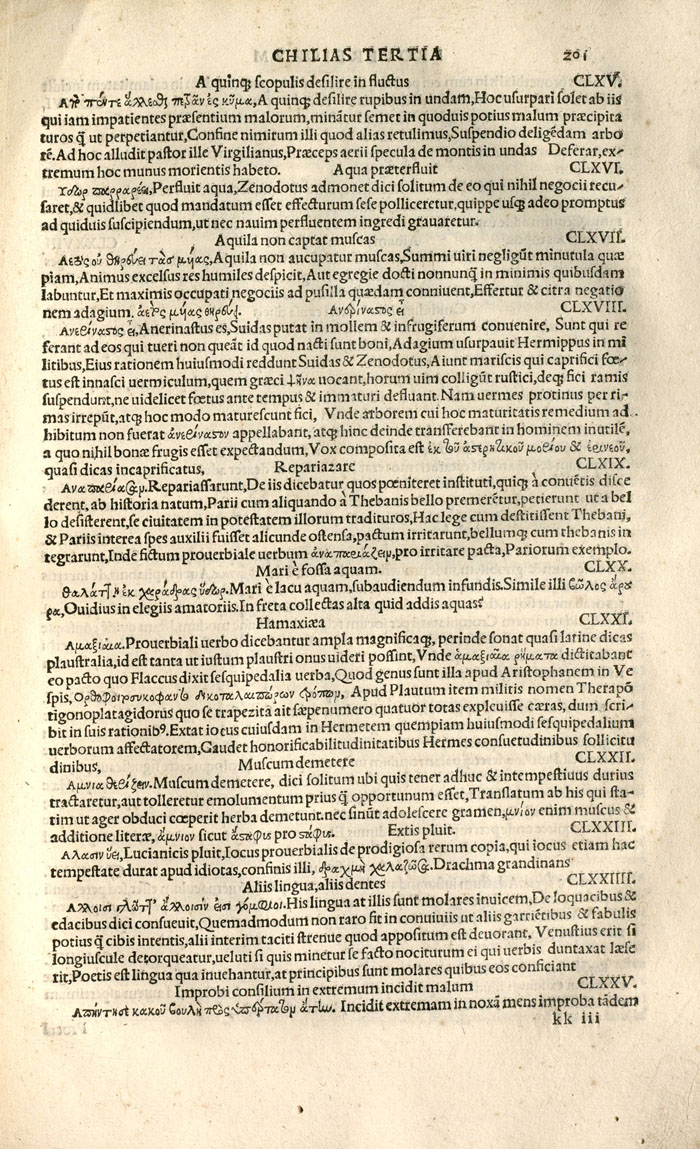 CHILIAS TERTIA 201
A quinq; scopulis desilire in fluctus CLXV.
A quinq; desilire rupibus in undam, Hoc usurpari solet ab iis
qui iam impatientes præsentium malorum, minãtur semet in quoduis potius malum præcipita
turos q̃ ut perpetiantur, Confine nimirum illi quod alias retulimus, Suspendio deligẽdam arbo
rẽ. Ad hoc alludit pastor ille Virgilianus, Præceps aerii specula de montis in undas Deferar, ex-
tremum hoc munus morientis habeto. Aqua præterfluit CLXVI.
Perfluit aqua, Zenodotus admonet dici solitum de eo qui nihil negocii recu-
saret, & quidlibet quod mandatum esset effecturum sese polliceretur, quippe usq; adeo promptus
ad quiduis suscipiendum, ut nec nauim perfluentem ingredi grauaretur.
Aquila non captat muscas CLXVII.
Ἀετὸς οὐ θηρεύει τὰς μύας, Aquila non aucupatur muscas, Summi uiri negligũt minutula quæ
piam, Animus excelsus res humiles despicit, Aut egregie docti nonnunq̃ in minimis quibusdam
labuntur, Et maximis occupati negociis ad pusilla quædam conniuent, Effertur & citra negatio
nem adagium. CLXVIII.
Anerinastus es, Suidas putat in mollem & infrugiferum conuenire, Sunt qui re
ferant ad eos qui tueri non queãt id quod nacti sunt boni, Adagium usurpauit Hermippus in mi
litibus, Eius rationem huiusmodi reddunt Suidas & Zenodotus, Aiunt mariscis qui caprifici fœ-
tus est innasci uermiculum, quem græci ψῆνα uocant, horum uim colligũt rustici, deq; fici ramis
suspendunt, ne uidelicet fœtus ante tempus & immaturi defluant. Nam uermes protinus per ri-
mas irrepũt, atq; hoc modo maturescunt fici, Vnde arborem cui hoc maturitatis remedium ad
hibitum non fuerat appellabant, atq; hinc deinde transferebant in hominem inutilẽ,
a quo nihil bonæ frugis esset expectandum, Vox composita est ἐκ τοῦ ἀστερητικοῦ μορίου & ἐρινεοῦ,
quasi dicas incaprificatus, Repariazare CLXIX.
Repariassarunt, De iis dicebatur quos pœniteret instituti, quiq; à conuẽtis disce
derent, ab historia natum, Parii cum aliquando à Thebanis bello premerẽtur, petierunt ut a bel
lo desisterent, se ciuitatem in potestatem illorum tradituros, Hac lege cum destitissent Thebani,
& Pariis interea spes auxilii fuisset alicunde ostensa, pactum irritarunt, bellumq; cum thebanis in
tegrarunt, Inde fictum prouerbiale uerbum ἀναπαριάζειν, pro irritare pacta, Pariorum exemplo.
Mari è fossa aquam. CLXX.
Mari è lacu aquam, subaudiendum infundis. Simile illi
Ouidius in elegiis amatoriis. In freta collectas alta quid addis aquas?
Hamaxiæa CLXXI.
Ἁμαξιαῖα. Prouerbiali uerbo dicebantur ampla magnificaq;, perinde sonat quasi latine dicas
plaustralia, id est tanta ut iustum plaustri onus uideri possint, Vnde ἁμαξιαῖα ῥήματα dictitabant
eo pacto quo Flaccus dixit sesquipedalia uerba, Quod genus sunt illa apud Aristophanem in Ve
spis, Apud Plautum item militis nomen Therapõ
tigonoplatagidorus quo se trapezita ait sæpenumero quatuor totas explcuisse cæras, dum scri-
bit in suis rationibꝰ. Extat iocus cuiusdam in Hermetem quempiam huiusmodi sesquipedalium
uerborum affectatorem, Gaudet honorificabilitudinitatibus Hermes consuetudinibus sollicitu
dinibus, Muscum demetere CLXXII.
Muscum demetere, dici solitum ubi quis tener adhuc & intempestiuus durius
tractaretur, aut tolleretur emolumentum prius q̃ opportunum esset, Translatum ab his qui sta-
tim ut ager obduci cœperit herba demetunt, nec sinũt adolescere gramen, μνίον enim muscus &
additione literæ, ἄμνιον sicut ἄσταφις pro στάφις. Extis pluit. CLXXIII.
Lucianicis pluit, Iocus prouerbialis de prodigiosa rerum copia, qui iocus etiam hac
tempestate durat apud idiotas, confinis illi, Drachma grandinans
Aliis lingua, aliis dentes CLXXIIII.
His lingua at illis sunt molares inuicem, De loquacibus &
edacibus dici consueuit, Quemadmodum non raro fit in conuiuiis ut aliis garriẽtibus & fabulis
potius q̃ cibis intentis, alii interim taciti strenue quod appositum est deuorant. Venustius erit si
longiuscule detorqueatur, ueluti si quis minetur se facto nociturum ei qui uerbis duntaxat læse
rit, Poetis est lingua qua inuehantur, at principibus sunt molares quibus eos conficiant
Improbi consilium in extremum incidit malum CLXXV.
Incidit extremam in noxã mens improba tãdem
kk iii